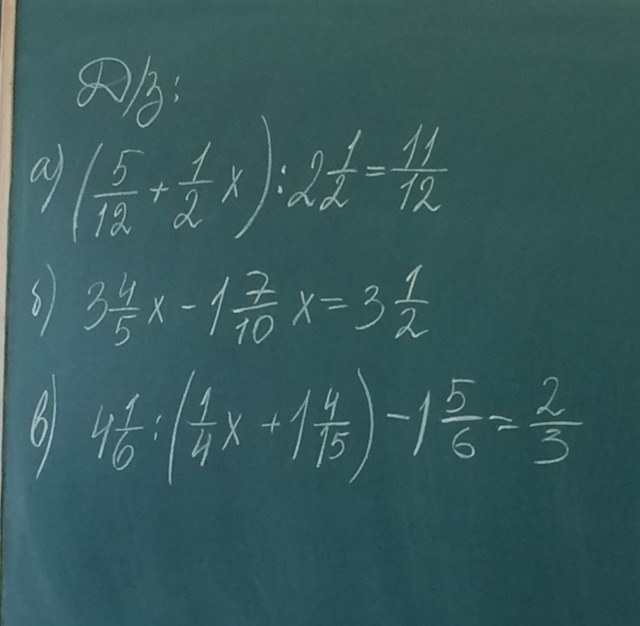 Д/з:
а) (5/12 + 1/2 x) : 2 1/2 = 11/12
б) 3 4/5 x - 1 7/10 x = 3 1/2
в) 4 1/6 : (1/4 x + 1 4/15) - 1 5/6 = 2/3